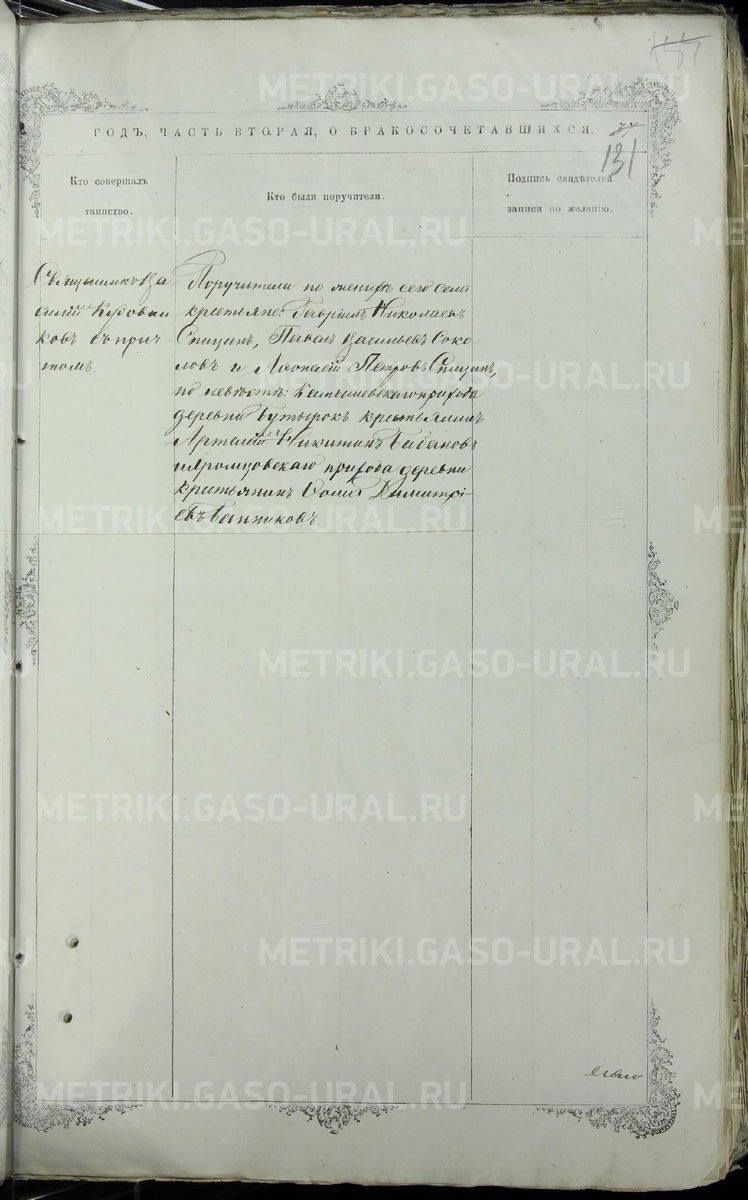 METRIKI.GASO-URAL.RU
ГОДЪ, ЧАСТЬ ВТОРАЯ, О БРАКОСОЧЕТАВШИХСЯ.
131
Кто совершалъ
таинство.
Кто были поручители.
Подпись свидѣтелей
записи по желанію.
Священникъ Ва
силій
ковъ съ прич
томъ.
Поручители по женихѣ сего села
крестьяне: Гавріилъ Николаевъ
Спицинъ, Павелъ Васильевъ Соко-
ловъ и Петровъ Спицинъ,
по невѣстѣ: Камышевскаго прихода
деревни Бутырокъ крестьянинъ
Никитинъ Бабановъ
и прихода деревни
крестьянинъ Димитрі-
евъ Банниковъ.
METRIKI.GASO-URAL.RU
METRIKI.GASO-URAL.RU
METRIKI.GASO-URAL.RU
METRIKI.GASO-URAL.RU
METRIKI.GASO-URAL.RU
METRIKI.GASO-URAL.RU
METRIKI.GASO-URAL.RU